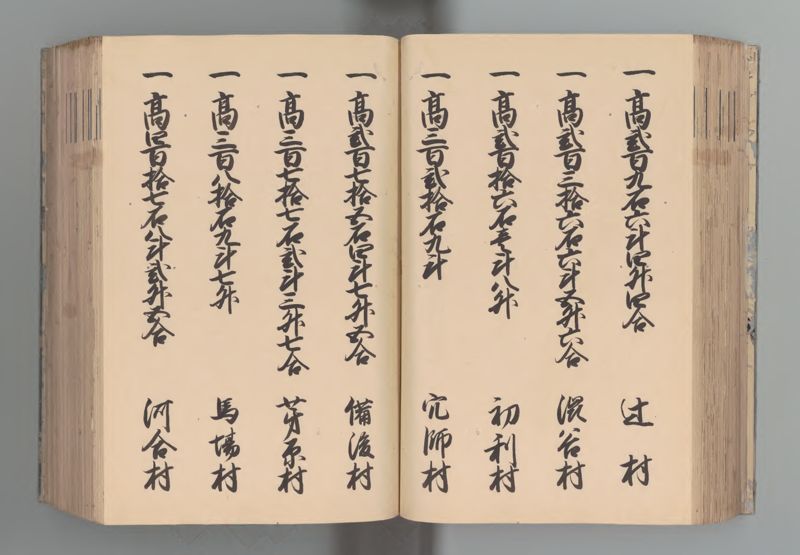 一 高貳百九石六斗四升四合 辻村
一 高貳百三拾六石六斗五升六合 渋谷村
一 高貳百拾六石壱斗八升 初利村
一 高三百貳拾石九斗 穴師村
一 高貳百七拾五石四斗七升五合 備後村
一 高三百七拾七石貳斗三升七合 芽原村
一 高三百八拾石九斗七升 馬場村
一 高四百拾七石八斗貳升五合 河合村